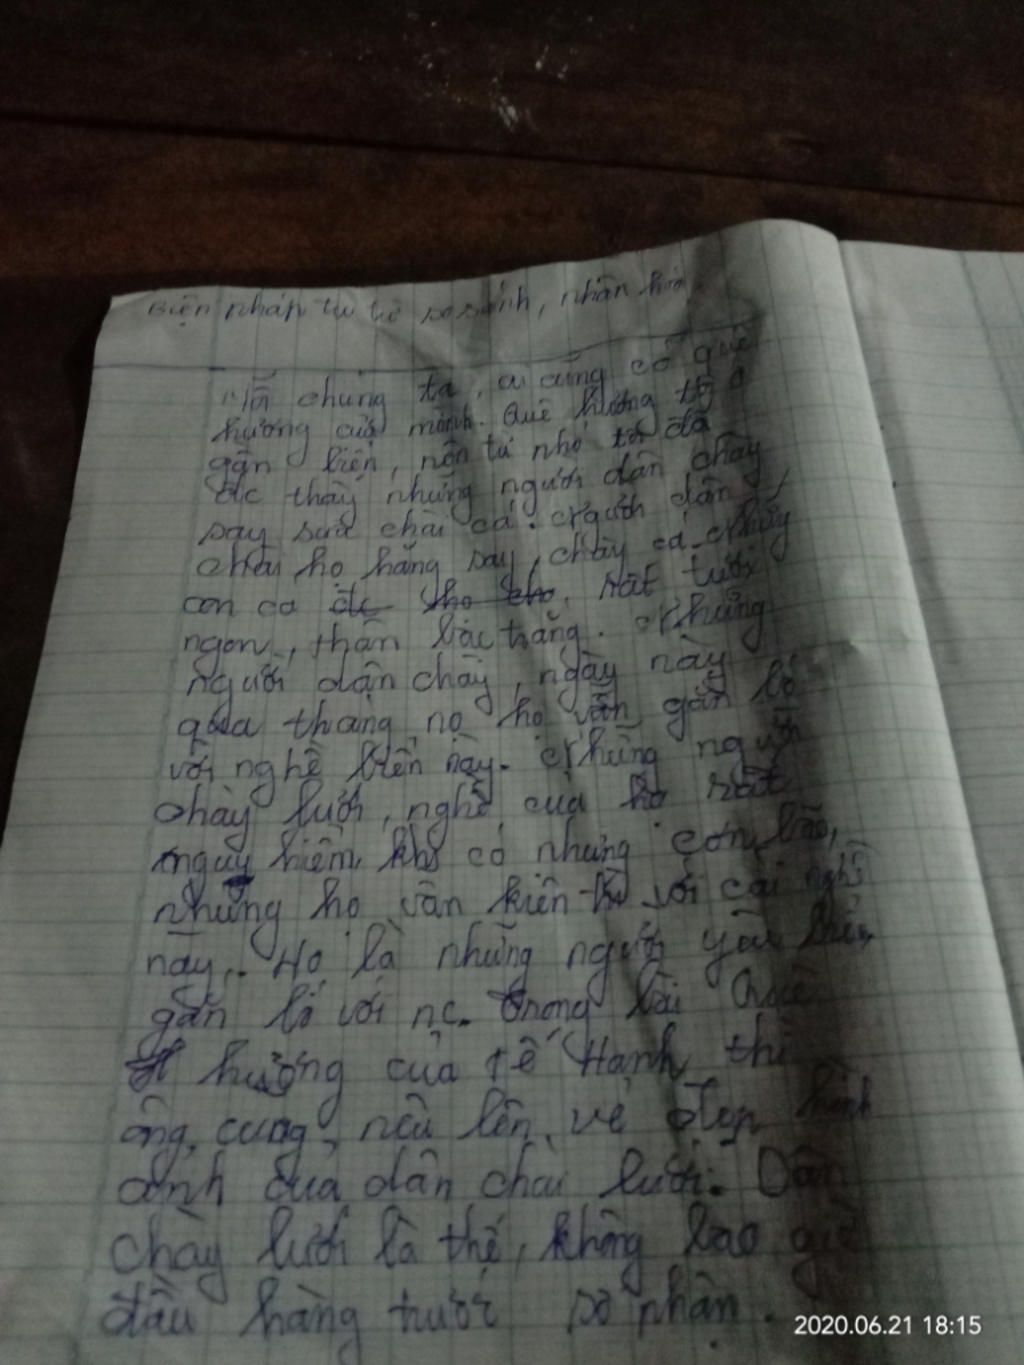 Biện pháp tu từ so sánh, nhân hóa.
Mỗi chúng ta, ai cũng có quê
hương của mình. Quê hương tớ ở
gần biển, nên từ nhỏ tớ đã
đc thấy những người dân chày
say sưa chài cá. Người dân
chài họ hăng say, chày cá. Những
con cá đc rất tươi
ngon, thân bạc trắng. Những
người dân chày, ngày này
qua tháng nọ họ vẫn gắn bó
với nghề biển này. Những người
chày lưới, nghề của họ rất
nguy hiểm, khi có những cơn bão,
nhưng họ vẫn kiên trì với cái nghề
này.. Họ là những người yêu biển,
gắn bó với nc. Trong bài Quê
hương của Tế Hanh thì
ông cũng nêu lên vẻ đẹp hình
ảnh của dân chài lưới. Dân
chày lưới là thế, không bao giờ
đầu hàng trước số phận.
2020.06.21 18:15